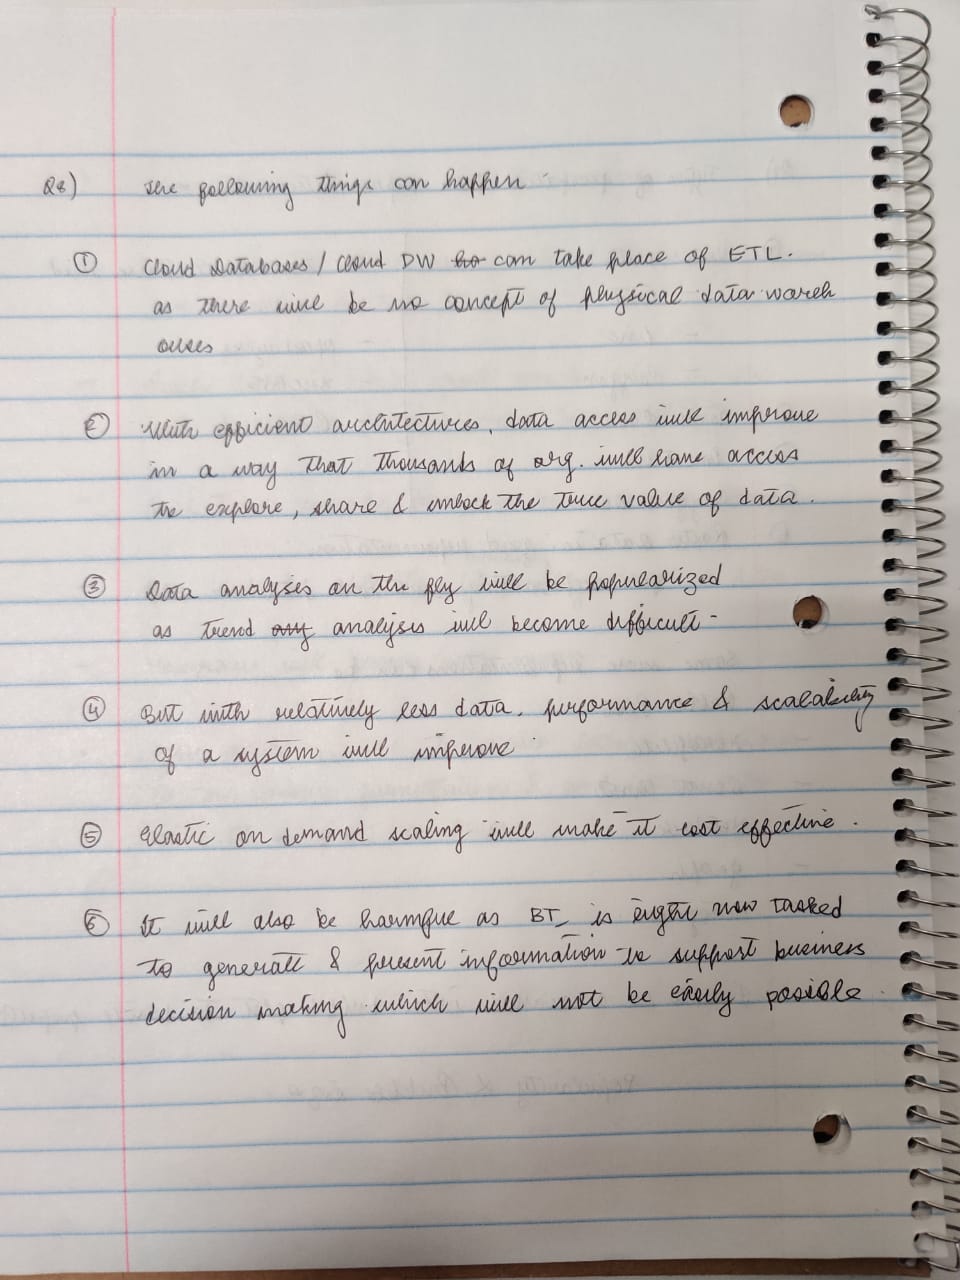 Q8) The following things can happen -
① Cloud Databases / Cloud DW can take place of ETL.
as there will be no concept of physical data wareh
ouses
② With efficient architectures, data access will improve
in a way that thousands of org. will have access
to explore, share & unlock the true value of data.
③ Data analysis on the fly will be popularized
as trend analysis will become difficult -
④ But with relatively less data, performance & scalability
of a system will improve.
⑤ Elastic on demand scaling will make it cost effective.
⑥ It will also be harmful as BI is right now tasked
to generate & present information to support business
decision making which will not be easily posible